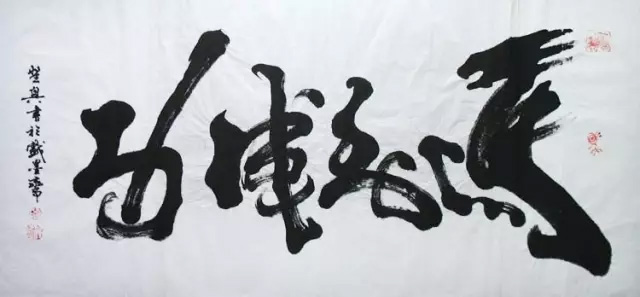 馬到成功
書於戲墨齋